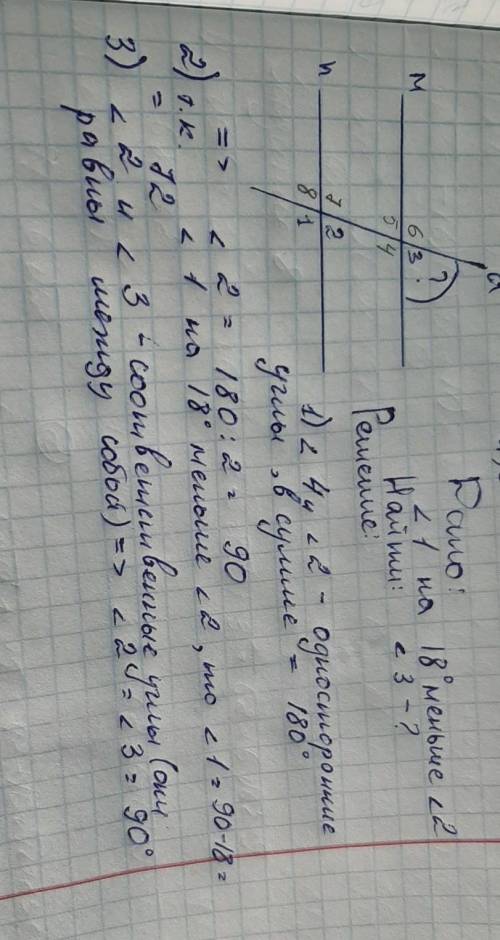 Дано:
< 1 на 18° меньше < 2
Найти: < 3 - ?
Решение:
a
M
6 3 ?
5 4
n
7 2
8 1
1) < 4 и < 2 - односторонние
углы, в сумме = 180°
=> < 2 = 180 : 2 = 90
2) т.к. < 1 на 18° меньше < 2, то < 1 = 90-18 =
= 72
3) < 2 и < 3 - соответственные углы (они
равны между собой) => < 2 = < 3 = 90°